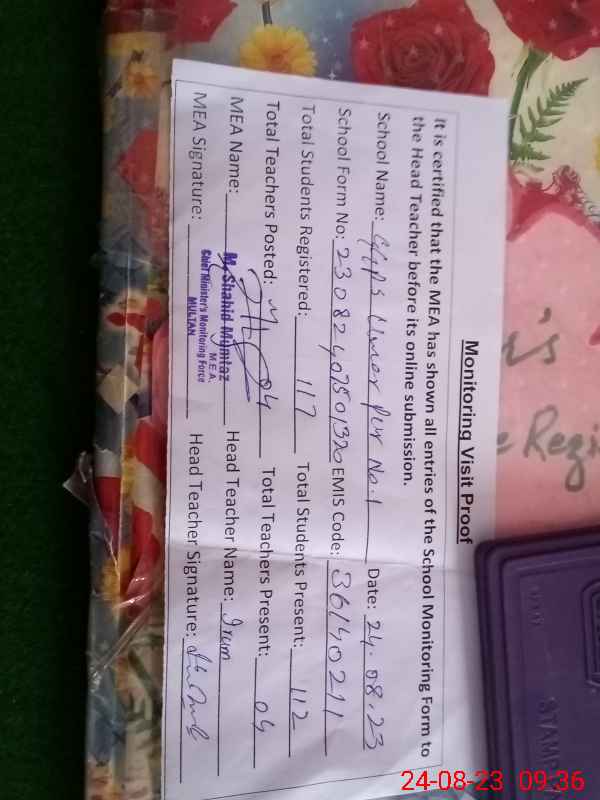 Monitoring Visit Proof
It is certified that the MEA has shown all entries of the School Monitoring Form to
the Head Teacher before its online submission.
School Name: GGPS No. 1 Date: 24.08.23
School Form No: EMIS Code: 36140211
Total Students Registered: 117 Total Students Present: 112
Total Teachers Posted: 04 Total Teachers Present: 04
MEA Name: M. Shahid Mumtaz Head Teacher Name: Irum
M.E.A.
Chief Minister's Monitoring Force
MULTAN
MEA Signature: Head Teacher Signature:
's
Regi
STAMP
24-08-23 09:36